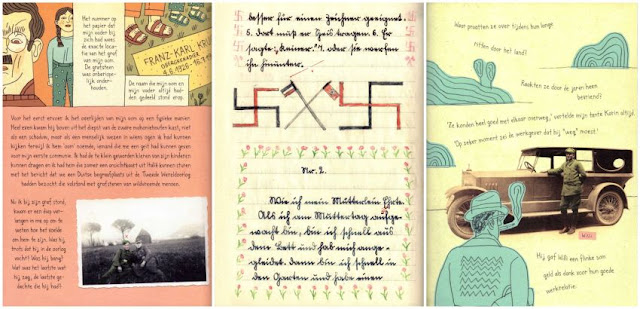 Het nummer op
het papier dat
mijn vader bij
zich had was
de exacte loca-
tie van het graf
van mijn oom.
De grafsteen
was onberispe-
lijk onder-
houden.
FRANZ-KARL KR
OBERGRENADIER
De naam die mijn oom en
mijn vader altijd had-
den gedeeld stond erop.
Voor het eerst ervoer ik het overlijden van mijn oom op een fysieke manier.
Heel even kwam hij boven uit het diepst van de zware mahoniehouten kast, niet
als een schaduw, maar als een menselijk wezen in wiens ogen ik had kunnen
kijken terwijl ik hem 'oom' noemde, iemand die me een gift had kunnen geven
voor mijn eerste communie. Ik had de te klein geworden kleren van zijn kinderen
kunnen dragen en ik had hem die zomer een ansichtkaart uit Italië kunnen sturen
met het bericht dat we een Duitse begraafplaats uit de Tweede Wereldoorlog
hadden bezocht die volstond met grafstenen van wildvreemde mensen.
Nu ik bij zijn graf stond,
kwam er een diep ver-
langen in me op om te
weten hoe het voelde
om hem te zijn. Was hij
trots dat hij in de oorlog
vocht? Was hij bang?
Wat was het laatste wat
hij zag, de laatste ge-
dachte die hij had?
besser für einen Zeichner geeignet.
5. dort muß er Gas tragen. 6. Er
sagte: „Keiner." 7. oder sie werfen
ihn hinunter.
Nr. 2.
Wie ich mein Mütterlein ehrte.
Als ich am Muttertag aufge-
wacht bin, bin ich schnell aus
dem Bett und hab mich ange-
kleidet. dann bin ich schnell in
den Garten und habe einen
Waar praatten ze over tijdens hun lange
ritten door het land?
Raakten ze door de jaren heen
bevriend?
'Ze konden heel goed met elkaar overweg,' vertelde mijn tante Karin altijd.
'Op zeker moment zei de werkgever dat hij "weg" moest.'
WILLI
Hij gaf Willi een flinke som
geld als dank voor hun goede
werkrelatie.